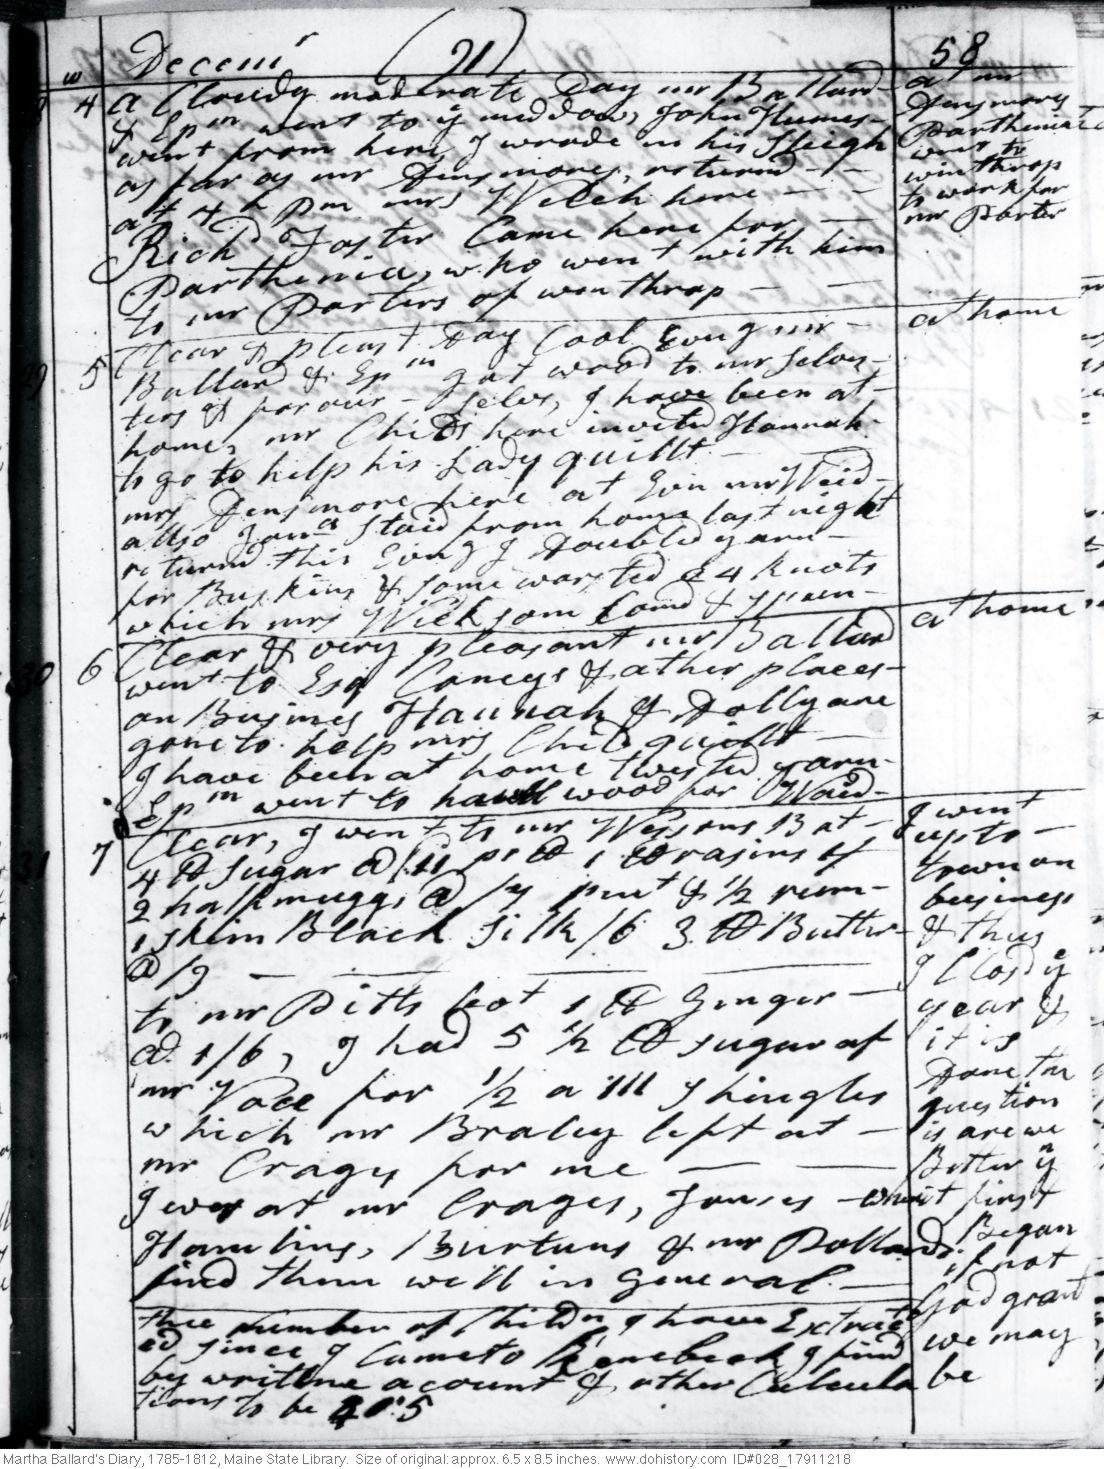 Decemr (91) 58
w
28 4 a Cloudy moderate Day mr Ballard
& Epm went to ye meddow, John Humes
went from here, I wrode in his Sleigh
as far as mr Densmores, returnd
at 4 h Pm mrs Welch here
Richd Foster Came here for
Parthenia, who went with him
to mr Porters of winthrop
at mr
Densmores
Parthenia
went to
winthrop
to work for
mr Porter
29 5 Clear & pleast Day Cool Evng mr
Ballard & Epm got wood to mr Salvi-
ters & for our selves, I have been at
home, mr Child here invited Hannah
to go to help his Lady quillt
mrs Densmore here at Evn mr Weid
allso Jona Staid from home last night
returnd this Evng I Doubled yarn
for Buskins & some worsted 24 knots
which mrs Wicksom Comd & spun
at home
30 6 Clear & very pleasant mr Ballard
went to Esq Coneys & other places
on Business Hannah & Dolly are
gone to help mrs Child quillt
I have been at home twisted yarn
Epm went to hawll wood for Waid
at home
31 7 Clear, I went to mr Wessons Bot
4 lb Sugar @ pr lb 1 lb rasins &
2 half muggs @ /9 put & 1/2 rum
1 skein Black silk /6 3 lb Butter
@ /9
to mr Pitts bot 1 lb Ginger
@ 1/6, I had 5 1/2 lb sugar of
mr Voce for 1/2 a M shingles
which mr Braley left at
mr Cragys for me
I was at mr Crages, Jonses
Hamlins, Burtuns & mr Pollards
find them well in general
I went
up to
town on
business
& thus
I Closd ye
year &
it is
Done the
question
is are we
Better yn
when it first
Began
if not
God grant
we may
be
thee number of Childn I have Extract
ed since I Came to Kenebeck I find
by writtne acount & other Calcula
tions to be 405
Martha Ballard's Diary, 1785-1812, Maine State Library. Size of original: approx. 6.5 x 8.5 inches. www.dohistory.com ID#028_17911218